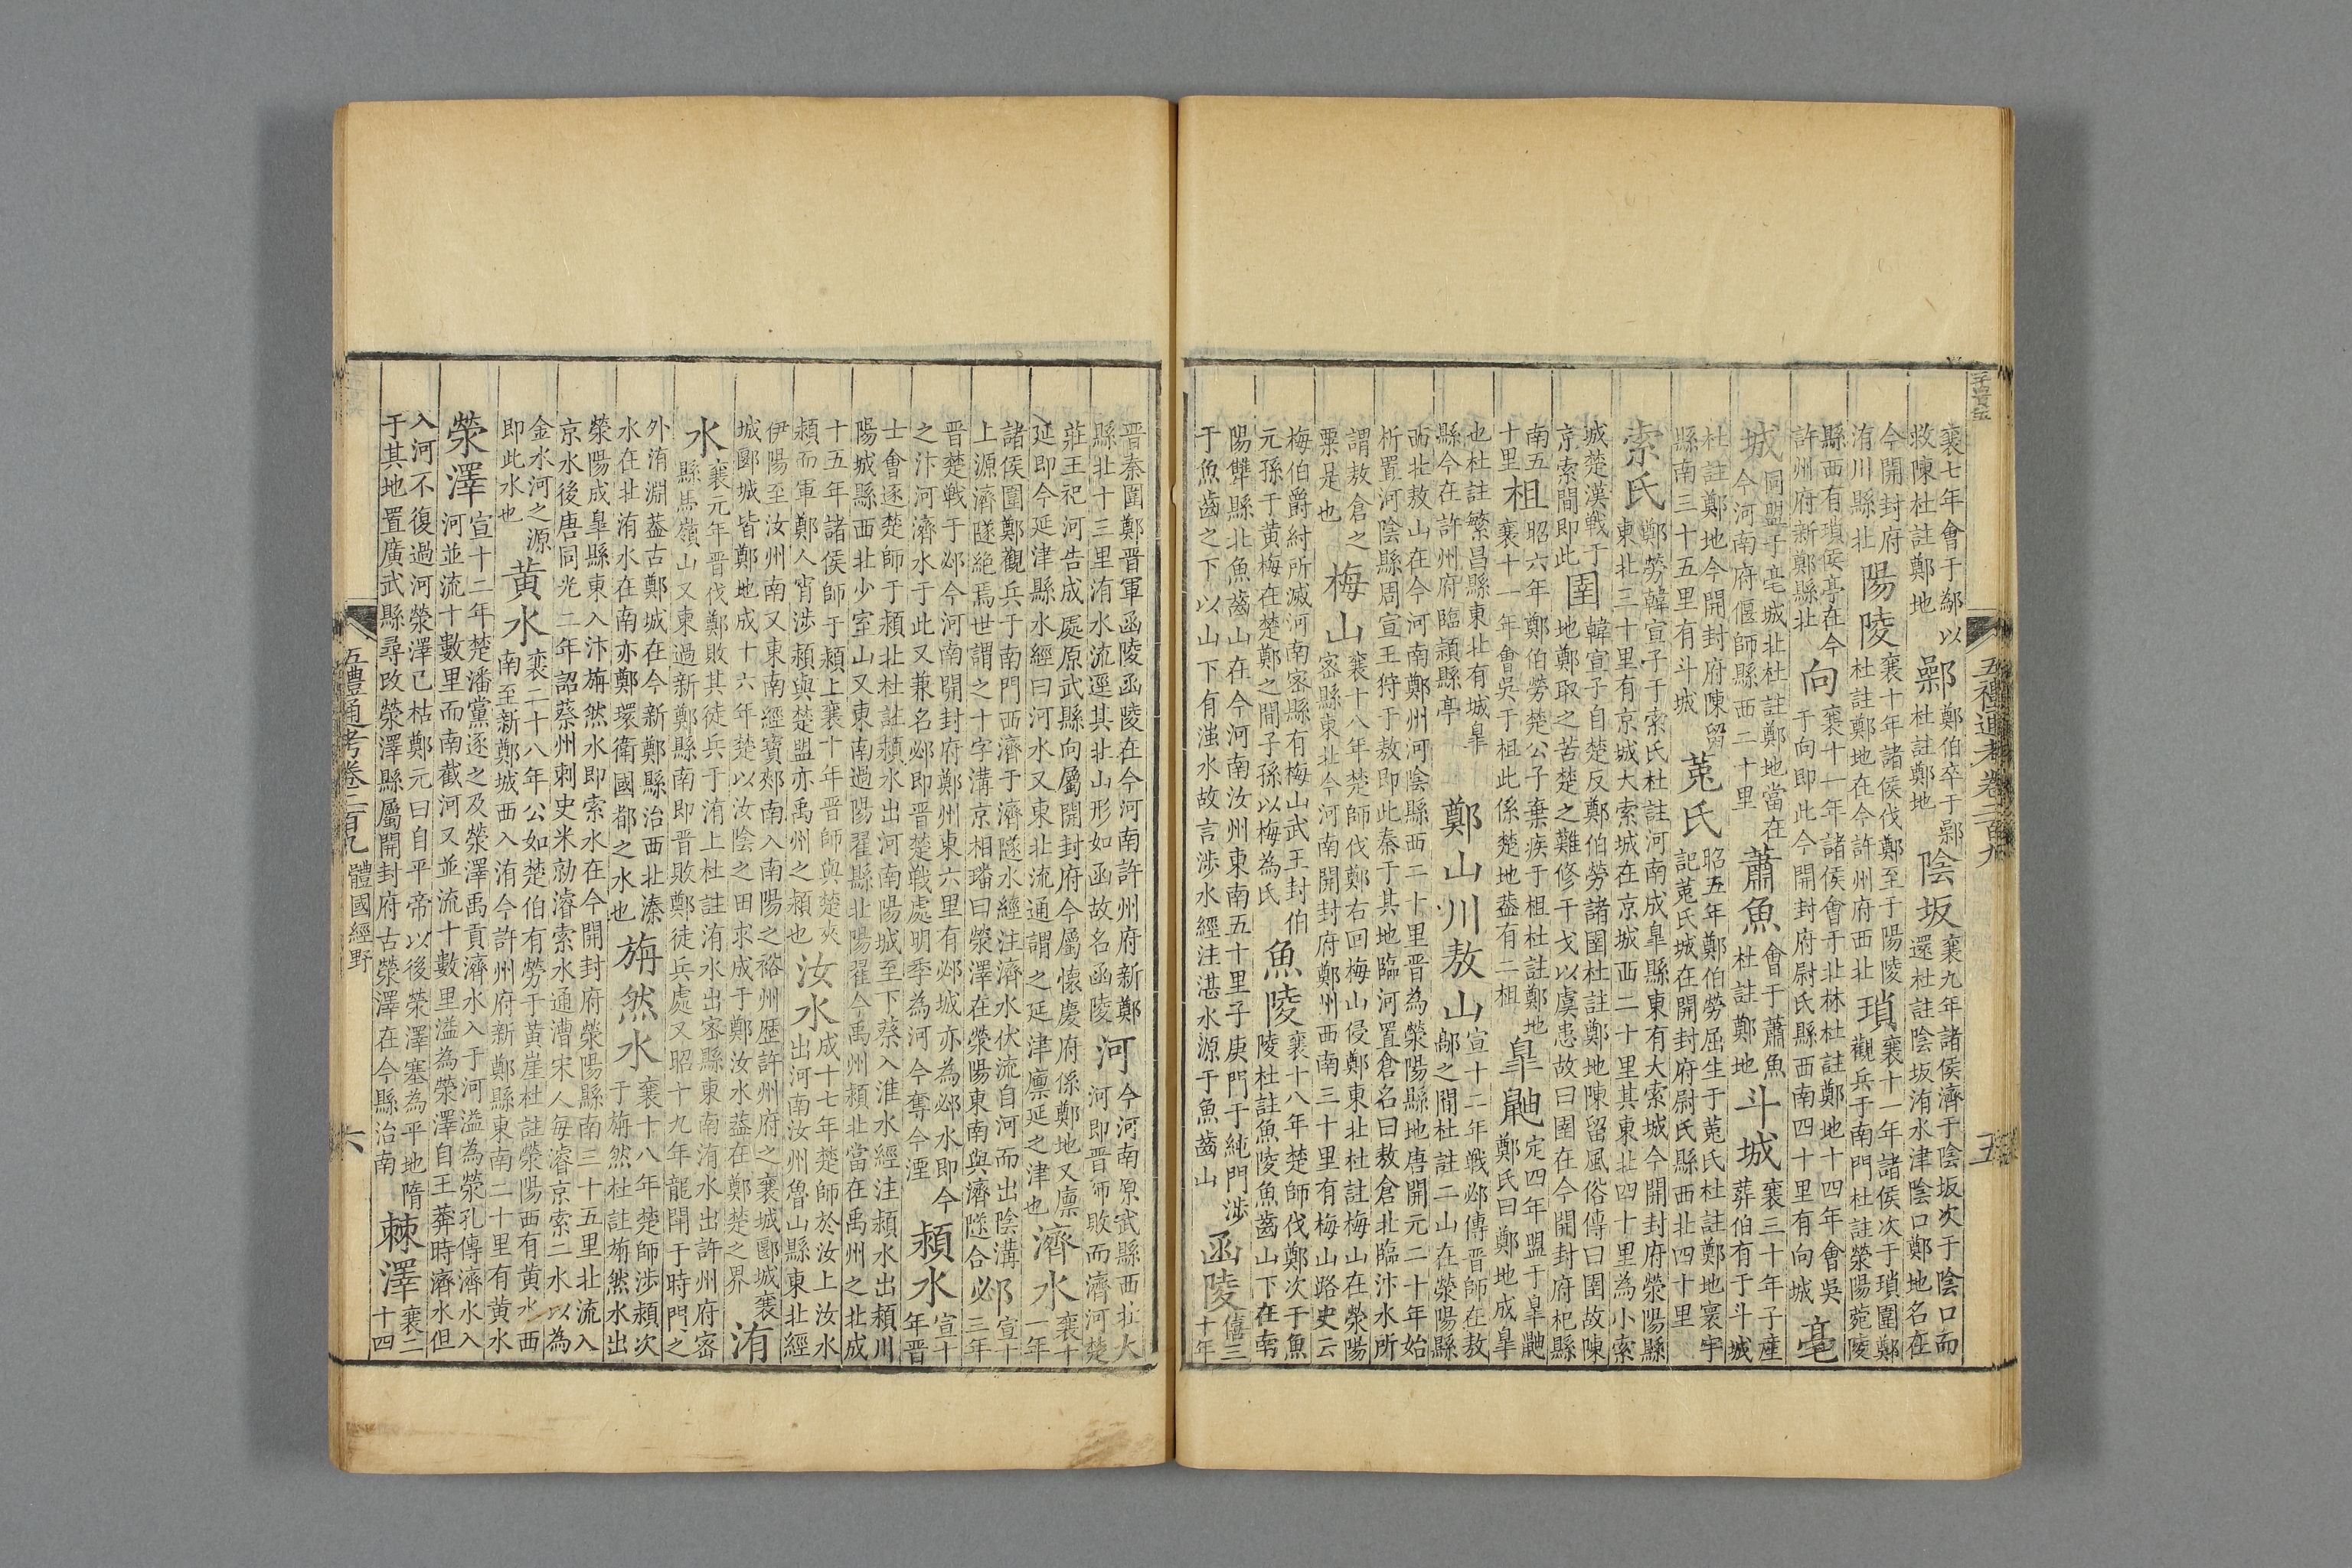 五禮通考卷二百九
五
襄七年會于鄬以救陳杜註鄭地 鄵 鄭伯卒于鄵杜註鄭地 陰坂 襄九年諸侯濟于陰坂次于陰口而還杜註陰坂洧水津陰口鄭地名在
今開封府洧川縣北 陽陵 襄十年諸侯伐鄭至于陽陵杜註鄭地在今許州府西北 瑣 襄十一年諸侯次于瑣圍鄭觀兵于南門杜註滎陽菀陵
縣西有瑣侯亭在今許州府新鄭縣北 向 襄十一年諸侯會于北林杜註鄭地十四年會吳于向即此今開封府尉氏縣西南四十里有向城 亳
城 同盟于亳城北杜註鄭地當在今河南府偃師縣西二十里 蕭魚 會于蕭魚杜註鄭地 斗城 襄三十年子產葬伯有于斗城
杜註鄭地今開封府陳留縣南三十五里有斗城 菟氏 昭五年鄭伯勞屈生于菟氏杜註鄭地寰宇記菟氏城在開封府尉氏縣西北四十里
索氏 鄭勞韓宣子于索氏杜註河南成皐縣東有大索城今開封府滎陽縣東北三十里有京城大索城在京城西二十里其東北四十里為小索
城楚漢戰于京索間即此 圉 韓宣子自楚反鄭伯勞諸圉杜註鄭地陳留風俗傳曰圉故陳地鄭取之苦楚之難修干戈以虞患故曰圉在今開封府杞縣
南五十里 柤 昭六年鄭伯勞楚公子棄疾于柤杜註鄭地襄十一年會吳于柤此係楚地葢有二柤 皐鼬 定四年盟于皐鼬鄭氏曰鄭地成皐
也杜註繁昌縣東北有城皐縣今在許州府臨潁縣亭 鄭山川敖山 宣十二年戰邲傳晉師在敖鄗之間杜註二山在滎陽縣
西北敖山在今河南鄭州河陰縣西二十里晉為滎陽縣地唐開元二十年始析置河陰縣周宣王狩于敖即此秦于其地臨河置倉名曰敖倉北臨汴水所
謂敖倉之粟是也 梅山 襄十八年楚師伐鄭右回梅山侵鄭東北杜註梅山在滎陽密縣東北今河南開封府鄭州西南三十里有梅山路史云
梅伯爵紂所滅河南密縣有梅山武王封伯元孫于黄梅在楚鄭之間子孫以梅為氏 魚陵 襄十八年楚師伐鄭次于魚陵杜註魚陵魚齒山下在南
陽犨縣北魚齒山在今河南汝州東南五十里子庚門于純門涉于魚齒之下以山下有滍水故言涉水經注湛水源于魚齒山 函陵 僖三十年
晉秦圍鄭晉軍函陵函陵在今河南許州府新鄭縣北十三里洧水流逕其北山形如函故名函陵 河 今河南原武縣西北大河即晉師敗而濟河楚
莊王祀河告成處原武縣向屬開封府今屬懷慶府係鄭地又廪延即今延津縣水經曰河水又東北流通謂之延津廪延之津也 濟水 襄十一年
諸侯圍鄭觀兵于南門西濟于濟隧水經注濟水伏流自河而出陰溝上源濟隧絶焉世謂之十字溝京相璠曰滎澤在滎陽東南與濟隧合 邲 宣十三年
晉楚戰于邲今河南開封府鄭州東六里有邲城亦為邲水即今之汴河濟水于此又兼名邲即晉楚戰處明季為河今奪今湮 潁水 宣十年晉
士會逐楚師于潁北杜註潁水出河南陽城至下蔡入淮水經注潁水出潁川陽城縣西北少室山又東南過陽翟縣北陽翟今禹州潁北當在禹州之北成
十五年諸侯師于潁上襄十年晉師與楚夾潁而軍鄭人宵涉潁與楚盟亦禹州之潁也 汝水 成十七年楚師於汝上汝水出河南汝州魯山縣東北經
伊陽至汝州南又東南經寶郟南入南陽之裕州歷許州府之襄城郾城襄城郾城皆鄭地成十六年楚以汝陰之田求成于鄭汝水葢在鄭楚之界 洧
水 襄元年晉伐鄭敗其徒兵于洧上杜註洧水出密縣東南洧水出許州府密縣馬嶺山又東過新鄭縣南即晉敗鄭徒兵處又昭十九年龍鬭于時門之
外洧淵葢古鄭城在今新鄭縣治西北溱水在北洧水在南亦鄭環衛國都之水也 旃然水 襄十八年楚師涉潁次于旃然杜註旃然水出
滎陽成皐縣東入汴旃然水即索水在今開封府滎陽縣南三十五里北流入京水後唐同光二年詔蔡州刺史米勍濬索水通漕宋人每濬京索二水以為
金水河之源即此水也 黄水 襄二十八年公如楚伯有勞于黃崖杜註滎陽西有黄水西南至新鄭城西入洧今許州府新鄭縣東南二十里有黄水
滎澤 宣十二年楚潘黨逐之及滎澤禹貢濟水入于河溢為滎孔傳濟水入河並流十數里而南截河又並流十數里溢為滎澤自王莽時濟水但
入河不復過河滎澤已枯鄭元曰自平帝以後滎澤塞為平地隋于其地置廣武縣尋改滎澤縣屬開封府古滎澤在今縣治南 棘澤 襄二十四
五禮通考卷二百九 體國經野
六